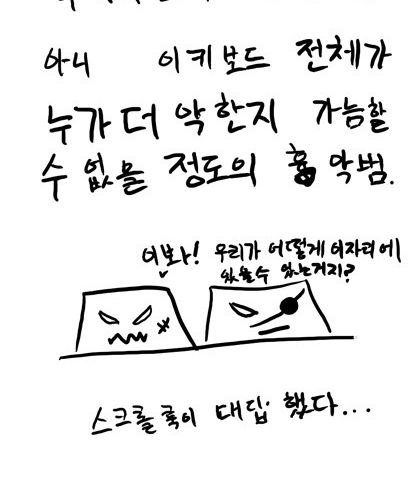 아니 이키보드 전체가
누가더 악한지 가늠할
수 없을 정도의 흉악범.
이봐! 우리가 어떻게 이자리에
있을수 있는거지?
스크롤록이 대답 했다...